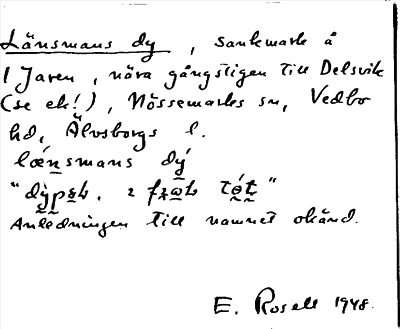 Länsmans dy , sankmark å
1 Jaren , nära gångstigen till Delsvik
(se ek!) , Nössemarks sn, Vedbo
hd, Älvsborgs l.
læ´nsmans dý
Anledningen till namnet okänd.
E. Rosell 1948.